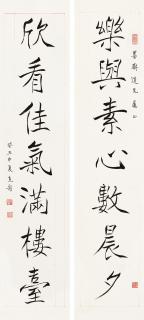 樂與素心數晨夕
欣看佳氣滿樓臺